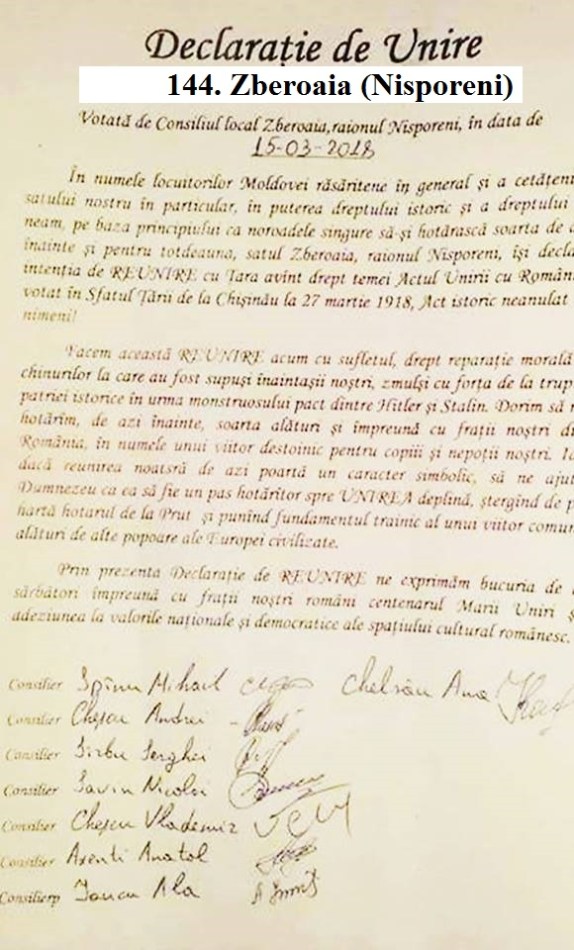 Declarație de Unire
144. Zberoaia (Nisporeni)
Votată de Consiliul local Zberoaia, raionul Nisporeni, în data de
15-03-2018
În numele locuitorilor Moldovei răsăritene în general și a cetățeni
satului nostru în particular, în puterea dreptului istoric și a dreptului
neam, pe baza principiului ca noroadele singure să-și hotărască soarta de a
înainte și pentru totdeauna, satul Zberoaia, raionul Nisporeni, își decla
intenția de REUNIRE cu Țara avînt drept temei Actul Unirii cu Români
votat în Sfatul Țării de la Chișinău la 27 martie 1918, Act istoric neanulat
nimeni!
Facem această REUNIRE acum cu sufletul, drept reparație morală
chinurilor la care au fost supuși înaintașii noștri, zmulși cu forța de la trup
patriei istorice în urma monstruosului pact dintre Hitler și Stalin. Dorim să n
hotărîm, de azi înainte, soarta alături și împreună cu frații noștri di
România, în numele unui viitor destoinic pentru copiii și nepoții noștri. Ia
dacă reunirea noatsră de azi poartă un caracter simbolic, să ne ajut
Dumnezeu ca ea să fie un pas hotărîtor spre UNIREA deplină, ștergînd de p
hartă hotarul de la Prut și punînd fundamentul trainic al unui viitor comun
alături de alte popoare ale Europei civilizate.
Prin prezenta Declarație de REUNIRE ne exprimăm bucuria de a
sărbători împreună cu frații noștri români centenarul Marii Uniri ș
adeziunea la valorile naționale și democratice ale spațiului cultural românesc.
Consilier Spînu Mihail Ana
Consilier Cheșcu Andrei
Consilier Sîrbu Serghei
Consilier Savin Nicolai
Consilier Cheșcu Vlademir
Consilier Axenti Anatol
Consilierp Iancu Ala